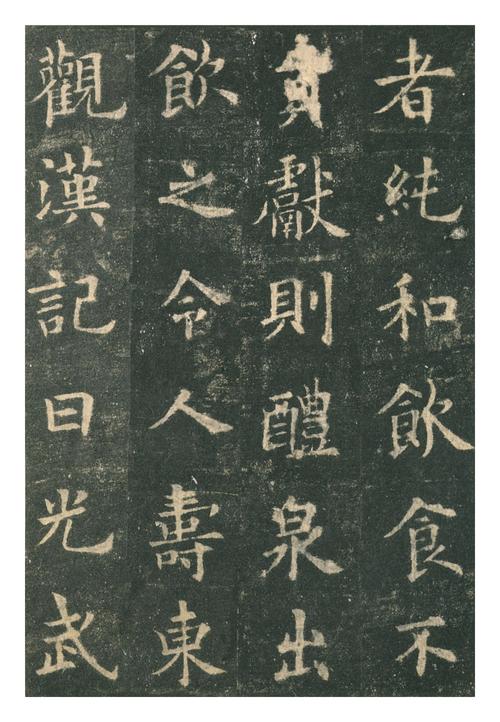 者純和飲食不
貢獻則醴泉出
飲之令人壽東
觀漢記曰光武